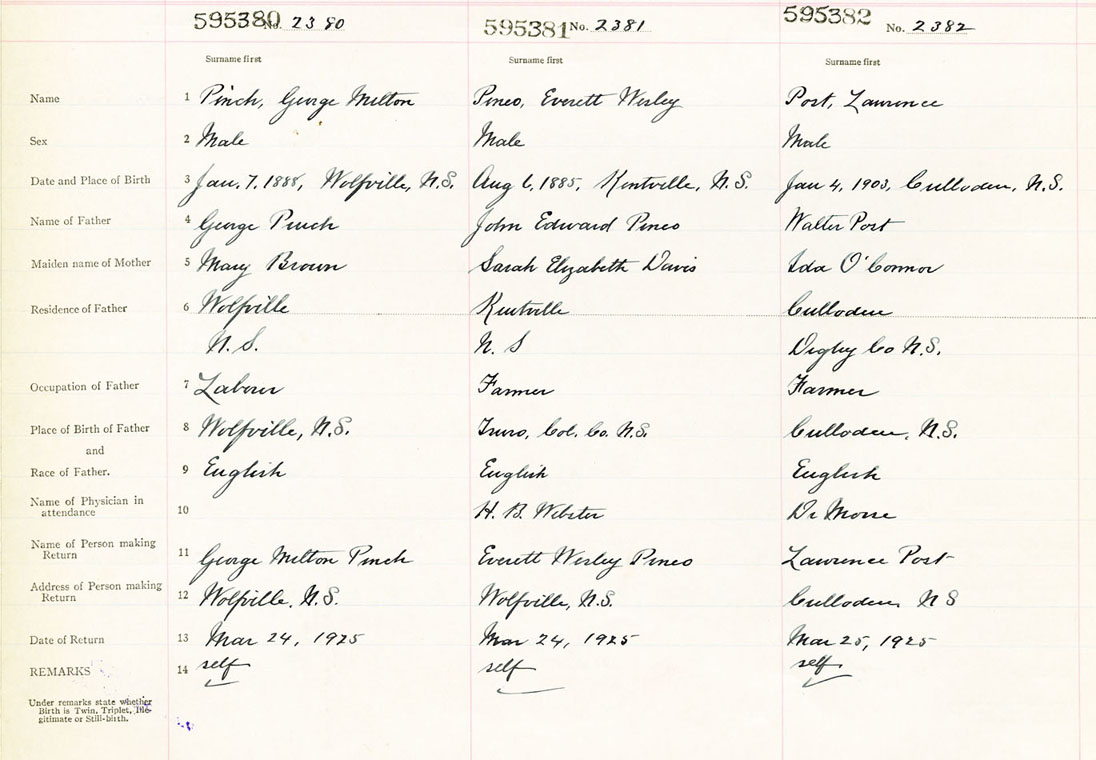 595380 No. 2380 595381 No. 2381 595382 No. 2382
Surname first Surname first Surname first
Name 1 Pinch, George Milton Pineo, Everett Wesley Post, Lawrence
Sex 2 Male Male Male
Date and Place of Birth 3 Jan. 7. 1888, Wolfville, N.S. Aug 6, 1885, Kentville, N.S. Jan 4, 1903, Culloden, N.S.
Name of Father 4 George Pinch John Edward Pineo Walter Post
Maiden name of Mother 5 Mary Brown Sarah Elizabeth Davis Ida O'Connor
Residence of Father 6 Wolfville Kentville Culloden
N.S. N. S Digby Co N.S.
Occupation of Father 7 Labour Farmer Farmer
Place of Birth of Father 8 Wolfville, N.S. Truro, Col. Co. N.S. Culloden, N.S.
and
Race of Father. 9 English English English
Name of Physician in
attendance 10 H. B. Webster Dr Morse
Name of Person making
Return 11 George Milton Pinch Everett Wesley Pineo Lawrence Post
Address of Person making
Return 12 Wolfville, N.S. Wolfville, N.S. Culloden N S
Date of Return 13 Mar 24, 1925 Mar 24, 1925 Mar 25, 1925
REMARKS 14 self self self
Under remarks state whether
Birth is Twin, Triplet, Ille-
gitimate or Still-birth.